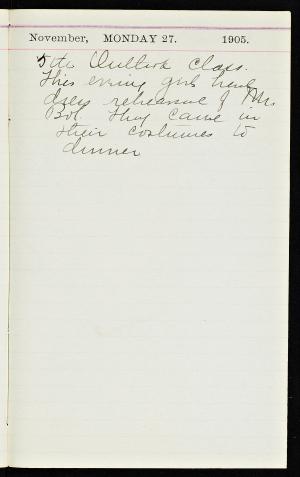 November, MONDAY 27. 1905.
5th Outlook Class.
This evening girls have
dress rehearsal of Mr.
Bob. They came in
their costumes to
dinner